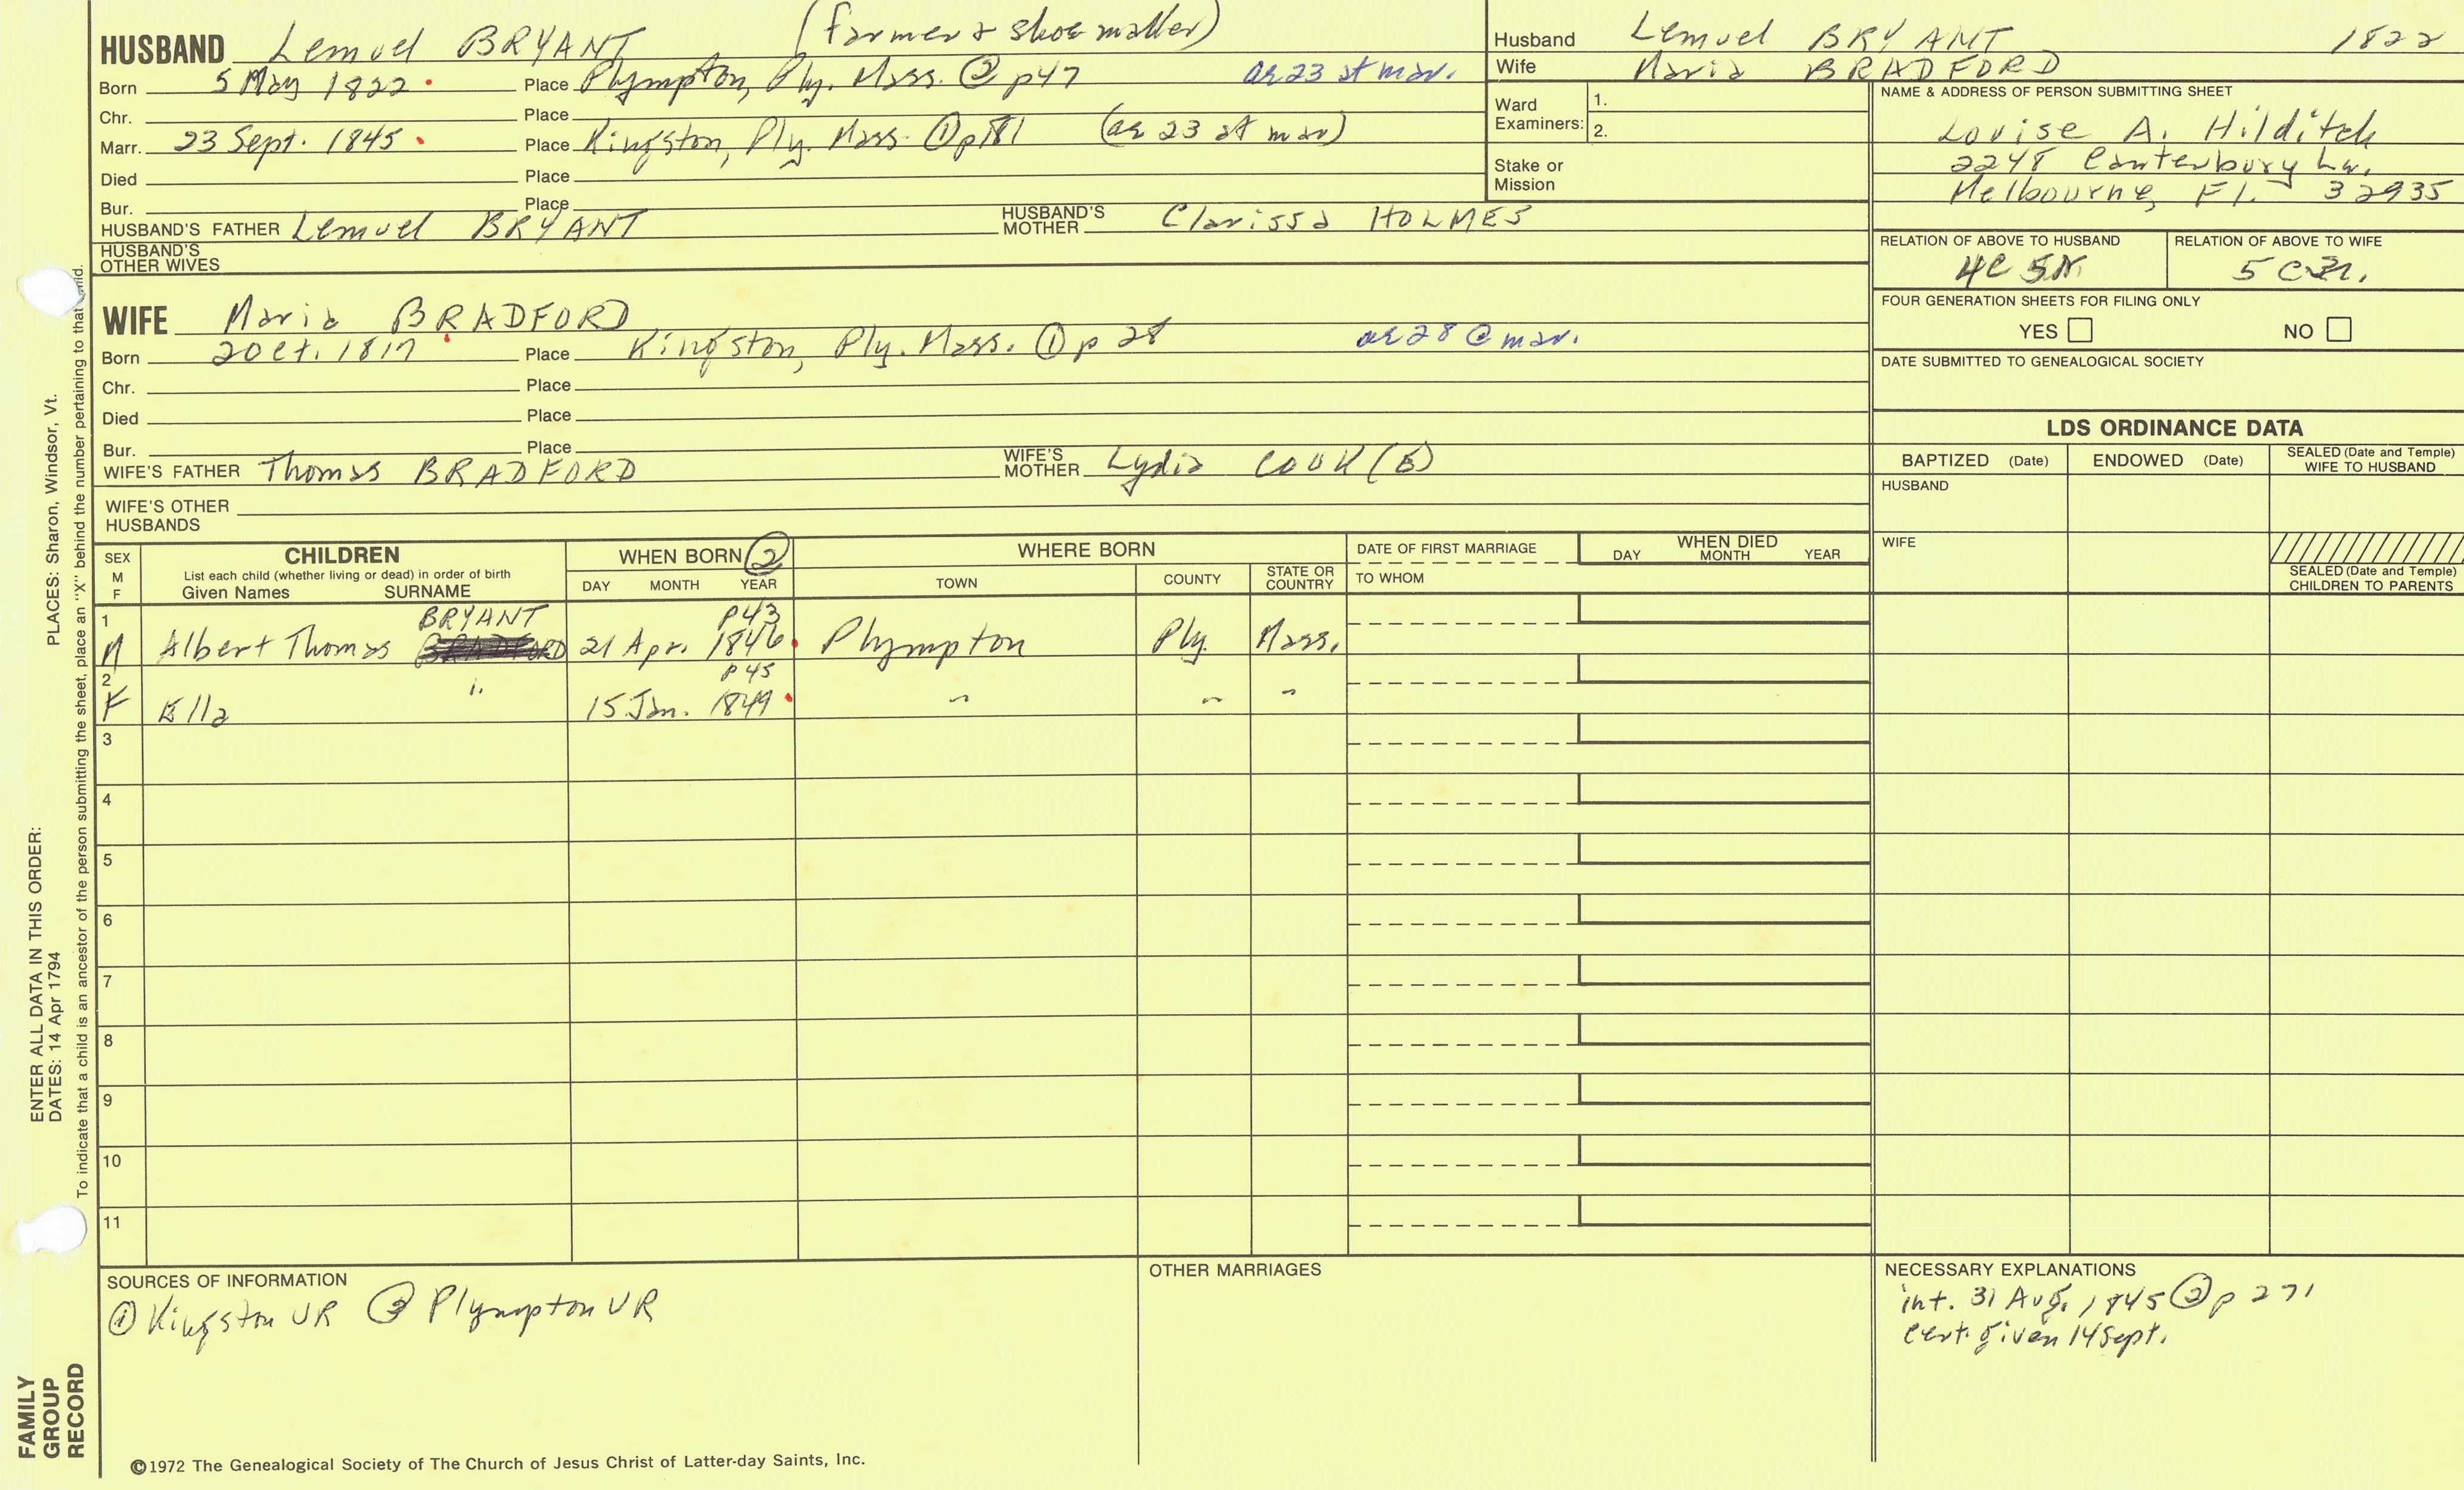 (farmer & shoe maker)
HUSBAND Lemuel BRYANT
Born 5 May 1822 Place Plympton, Ply. Mass. ② p47 ae 23 at mar.
Chr. Place
Marr. 23 Sept. 1845 Place Kingston, Ply. Mass. ① p181 (ae 23 at mar)
Died Place
Bur. Place
HUSBAND'S FATHER Lemuel BRYANT HUSBAND'S MOTHER Clarissa HOLMES
HUSBAND'S OTHER WIVES
Husband Lemuel BRYANT 1822
Wife Maria BRADFORD
Ward Examiners: 1.
2.
Stake or Mission
NAME & ADDRESS OF PERSON SUBMITTING SHEET
Louise A. Hilditch
2248 Canterbury Ln.
Melbourne, Fl. 32935
RELATION OF ABOVE TO HUSBAND RELATION OF ABOVE TO WIFE
4C 5R
FOUR GENERATION SHEETS FOR FILING ONLY
YES NO
DATE SUBMITTED TO GENEALOGICAL SOCIETY
WIFE Maria BRADFORD
Born 2 Oct. 1817 Place Kingston, Ply. Mass. ① p 28 ae 28 @ mar.
Chr. Place
Died Place
Bur. Place
WIFE'S FATHER Thomas BRADFORD WIFE'S MOTHER Lydia COOK(E)
WIFE'S OTHER HUSBANDS
LDS ORDINANCE DATA
BAPTIZED (Date) ENDOWED (Date) SEALED (Date and Temple) WIFE TO HUSBAND
HUSBAND
WIFE
SEALED (Date and Temple) CHILDREN TO PARENTS
SEX M F CHILDREN WHEN BORN ② WHERE BORN DATE OF FIRST MARRIAGE WHEN DIED
List each child (whether living or dead) in order of birth DAY MONTH YEAR
Given Names SURNAME DAY MONTH YEAR TOWN COUNTY STATE OR COUNTRY TO WHOM
1 BRYANT p43
M Albert Thomas BRADFORD 21 Apr. 1846 Plympton Ply. Mass.
2 p45
F Ella " 15 Jan. 1849 " " "
3
4
5
6
7
8
9
10
11
SOURCES OF INFORMATION
① Kingston VR ② Plympton VR
OTHER MARRIAGES
NECESSARY EXPLANATIONS
int. 31 Aug. 1845 ② p 271
cert. given 14 Sept.
©1972 The Genealogical Society of The Church of Jesus Christ of Latter-day Saints, Inc.
FAMILY GROUP RECORD
ENTER ALL DATA IN THIS ORDER:
DATES: 14 Apr 1794 PLACES: Sharon, Windsor, Vt.
To indicate that a child is an ancestor of the person submitting the sheet, place an "X" behind the number pertaining to that